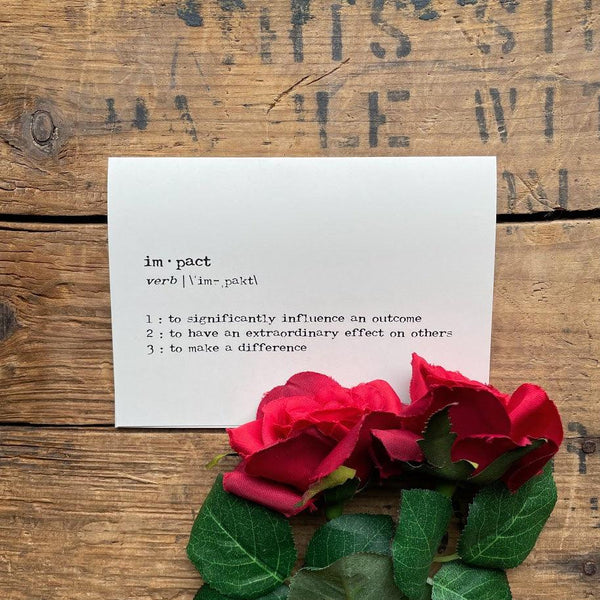 im·pact
verb | \ˈim-ˌpakt\
1 : to significantly influence an outcome
2 : to have an extraordinary effect on others
3 : to make a difference